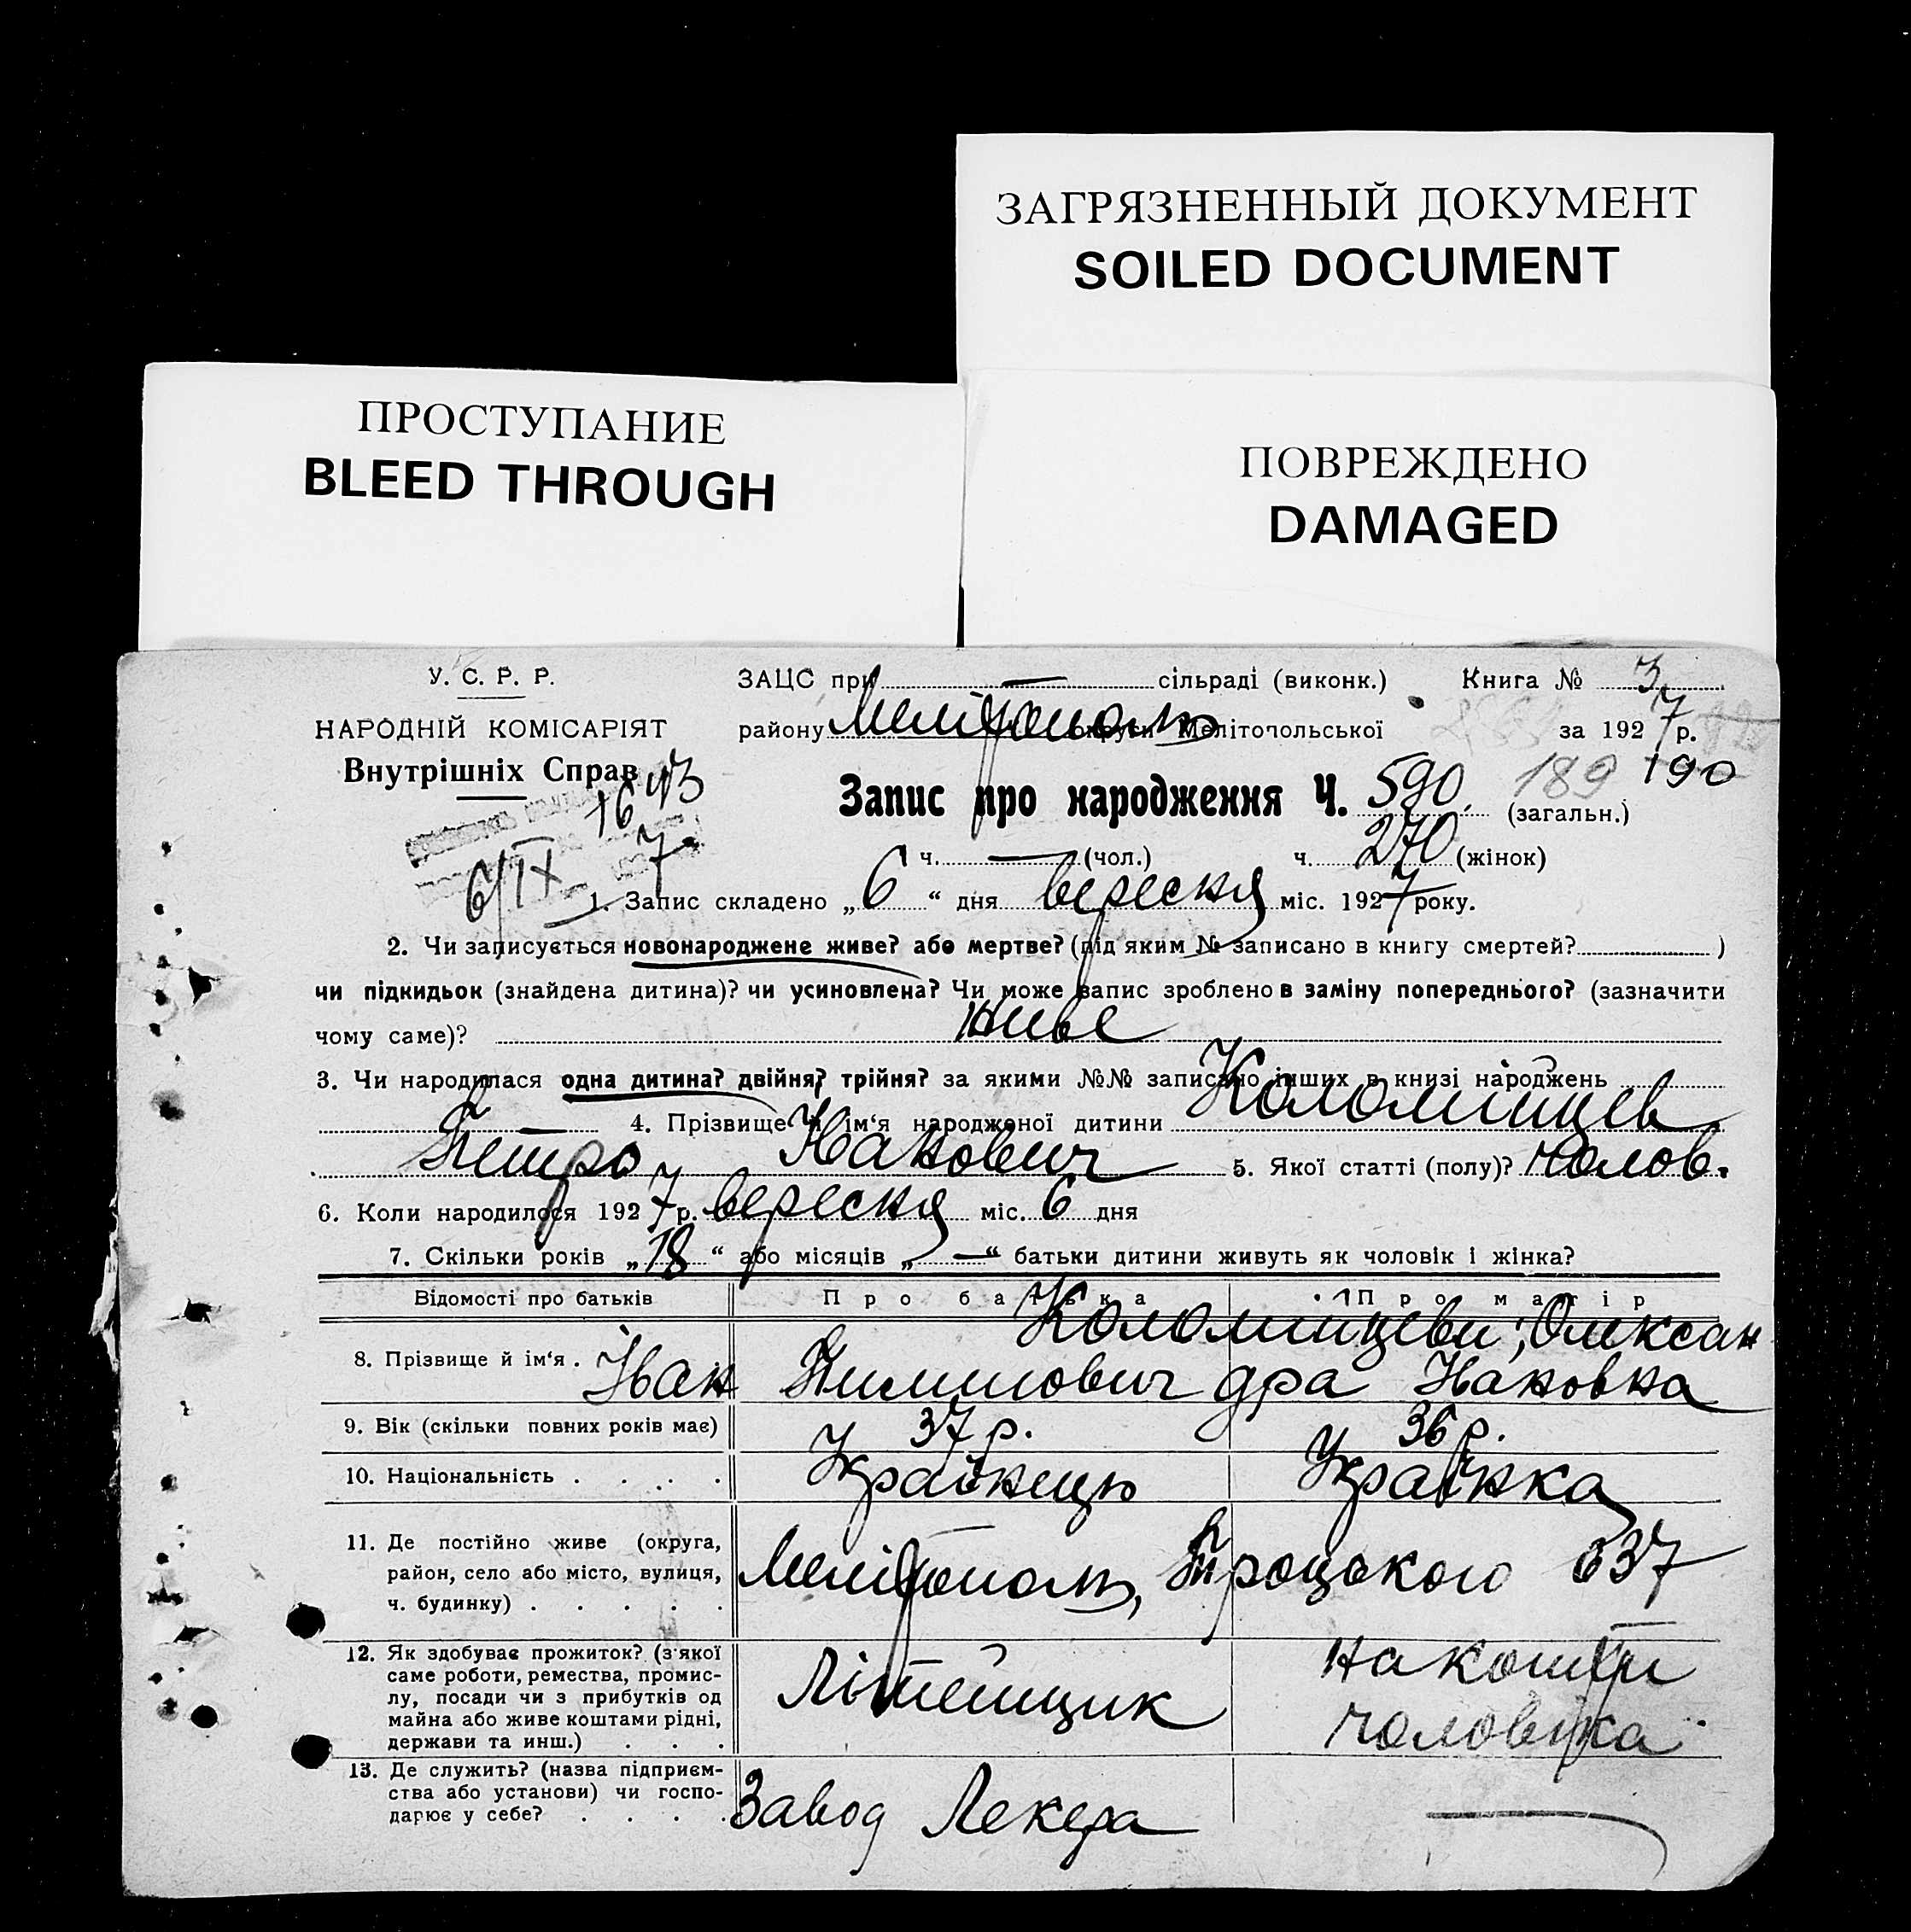 ЗАГРЯЗНЕННЫЙ ДОКУМЕНТ
SOILED DOCUMENT
ПРОСТУПАНИЕ
BLEED THROUGH
ПОВРЕЖДЕНО
DAMAGED
У. С. Р. Р.
НАРОДНІЙ КОМІСАРІЯТ
Внутрішніх Справ
ЗАЦС при — сільраді (виконк.) Книга № 3
району Мелітополь округи Мелітопольської за 1927 р.
189 190
Запис про народження Ч. 590. (загальн.)
ч. — (чол.) ч. 270 (жінок)
6/IX 7
1. Запис складено „6“ дня вересня міс. 1927 року.
2. Чи записується новонароджене живе? або мертве? (під яким № записано в книгу смертей? )
чи підкидьок (знайдена дитина)? чи усиновлена? Чи може запис зроблено в заміну попереднього? (зазначити
чому саме)? живе
3. Чи народилася одна дитина? двійня? трійня? за якими №№ записано інших в книзі народжень
— 4. Прізвище й ім‘я народженої дитини Коломийцев
Петро Іванович 5. Якої статті (полу)? чолов.
6. Коли народилося 1927 р. вересня міс. 6 дня
7. Скільки років „18“ або місяців „—“ батьки дитини живуть як чоловік і жінка?
Відомості про батьків Про батька Про матір
Коломийцеви, Олексан
8. Прізвище й ім‘я . Іван Пилипович дра Івановна
9. Вік (скільки повних років має) 37 р. 36 р.
10. Національність . . . . Українець Українка
11. Де постійно живе (округа,
район, село або місто, вулиця,
ч. будинку) . . . . . Мелітополь, Троцького 537
12. Як здобуває прожиток? (з‘якої
саме роботи, ремества, промис-
лу, посади чи з прибутків од
майна або живе коштами рідні,
держави та инш.) . . . Літейщик на кошти
чоловіка
13. Де служить? (назва підприєм-
ства або установи) чи госпо-
дарює у себе? . . . . Завод Лекера —